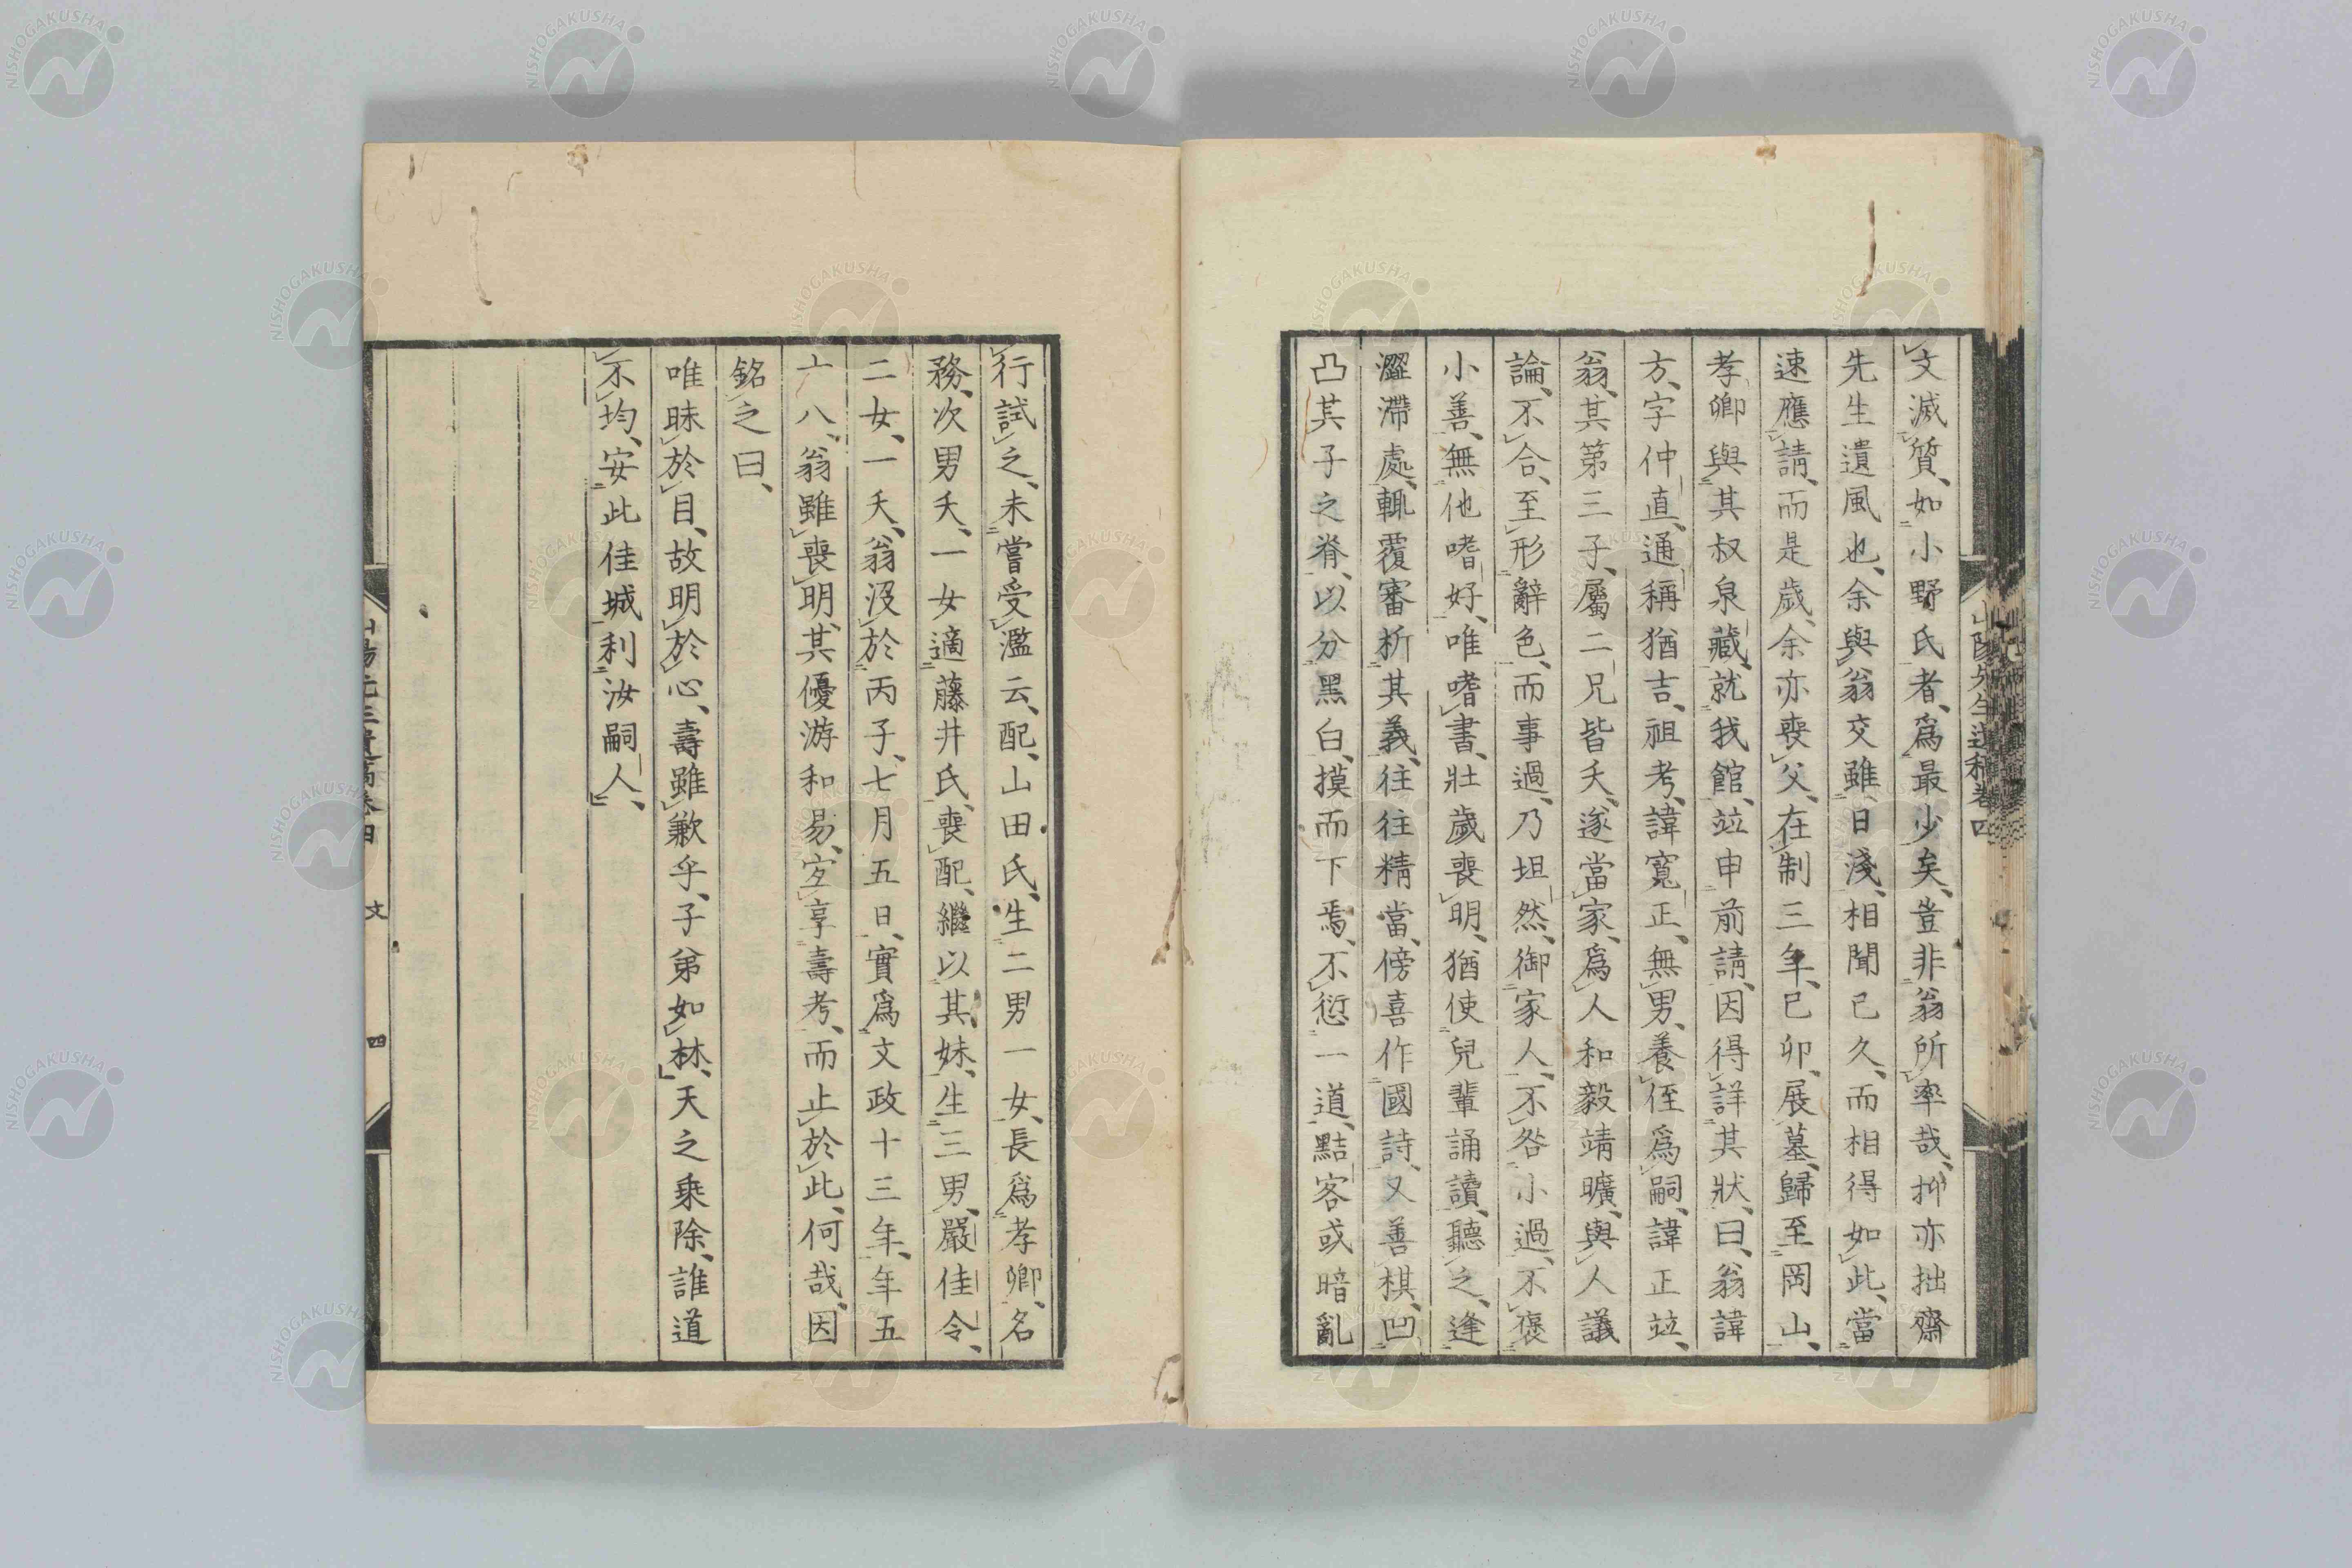 山陽先生遺稿卷四
文滅質、如小野氏者、爲最少矣、豈非翁所率哉、抑亦拙齋
先生遺風也、余與翁交雖日淺、相聞已久、而相得如此、當
速應請、而是歳、余亦喪父、在制三年、已卯、展墓、歸至岡山、
孝卿與其叔泉藏、就我館、竝申前請、因得詳其狀、曰、翁諱
方、字仲直、通稱猶吉、祖考、諱寬正、無男、養侄爲嗣、諱正竝、
翁、其第三子、屬二兄皆夭、遂當家、爲人和毅靖曠、與人議
論、不合、至形辭色、而事過、乃坦然、御家人、不咎小過、不襃
小善、無他嗜好、唯嗜書、壯歲喪明、猶使兒輩誦讀、聽之、逢
澀滯處、輒覆審析其義、往往精當、傍喜作國詩、又善棋、凹
凸其子之脊、以分黑白、摸而下焉、不愆一道、點客或暗亂
行試之、未嘗受濫云、配、山田氏、生二男一女、長爲孝卿、名
務、次男夭、一女適藤井氏、喪配、繼以其妹、生三男、嚴佳令、
二女、一夭、翁沒於丙子、七月五日、實爲文政十三年、年五
十八、翁雖喪明、其優游和易、宜享壽考、而止於此、何哉、因
銘之曰、
唯昧於目、故明於心、壽雖歉乎、子弟如林、天之乘除、誰道
不均、安此佳城、利汝嗣人、
山陽先生遺稿卷四 文 四
NISHOGAKUSHA